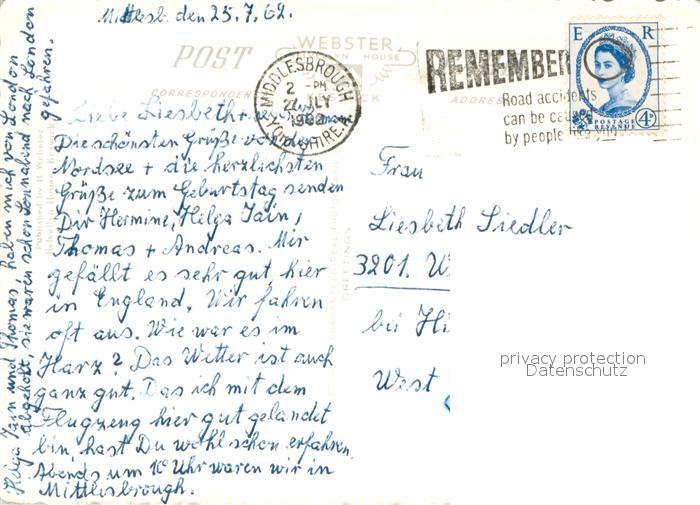 Mittlesb. den 25.7.62.
WEBSTER
POST
CORRESPONDENCE
ADDRESS
MIDDLESBROUGH
2 - PM
JLY
YORKSHIRE
REMEMBER
Road accidents
can be caused
by people like
E R
POSTAGE
REVENUE
4D
Liebe Liesbeth
Die schönsten Grüße von der
Nordsee + die herzlichsten
Grüße zum Geburtstag senden
Dir Hermine, Helga Iain,
Thomas + Andreas. Mir
gefällt es sehr gut hier
in England. Wir fahren
oft aus. Wie war es im
Harz? Das Wetter ist auch
ganz gut. Das ich mit dem
Flugzeug hier gut gelandet
bin, hast Du wohl schon erfahren.
Abends um 10 Uhr waren wir in
Mittlesbrough.
Helga Iain und Thomas, haben mich von London
abgeholt, sie waren schon Sonnabend nach London
gefahren.
GREETINGS
Frau
Liesbeth Siedler
3201. W
bei Hi
West
privacy protection
Datenschutz